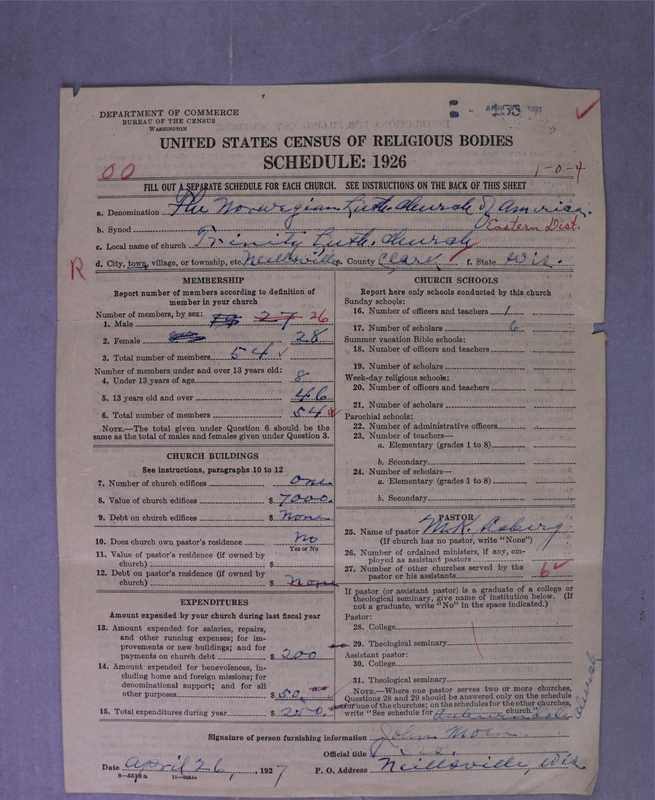 DEPARTMENT OF COMMERCE
BUREAU OF THE CENSUS
WASHINGTON
UNITED STATES CENSUS OF RELIGIOUS BODIES
SCHEDULE: 1926
00
1-0-4
FILL OUT A SEPARATE SCHEDULE FOR EACH CHURCH. SEE INSTRUCTIONS ON THE BACK OF THIS SHEET
a. Denomination The Norwegian Luth. Church of America.
b. Synod Eastern Dist.
c. Local name of church Trinity Luth. Church
R
d. City, town, village, or township, etc. Neillsville e. County Clark f. State Wis.
MEMBERSHIP
Report number of members according to definition of
member in your church
Number of members, by sex:
1. Male 27 26
2. Female 28
3. Total number of members 54
Number of members under and over 13 years old:
4. Under 13 years of age 8
5. 13 years old and over 46
6. Total number of members 54
NOTE.—The total given under Question 6 should be the
same as the total of males and females given under Question 3.
CHURCH BUILDINGS
See instructions, paragraphs 10 to 12
7. Number of church edifices One
8. Value of church edifices $ 7000.
9. Debt on church edifices $ None
10. Does church own pastor's residence? No
Yes or No
11. Value of pastor's residence (if owned by
church) $
12. Debt on pastor's residence (if owned by
church) $ None
EXPENDITURES
Amount expended by your church during last fiscal year
13. Amount expended for salaries, repairs,
and other running expenses; for im-
provements or new buildings; and for
payments on church debt $ 200
14. Amount expended for benevolences, in-
cluding home and foreign missions; for
denominational support; and for all
other purposes $ 50.
15. Total expenditures during year $ 250.
CHURCH SCHOOLS
Report here only schools conducted by this church
Sunday schools:
16. Number of officers and teachers 1
17. Number of scholars 6
Summer vacation Bible schools:
18. Number of officers and teachers
19. Number of scholars
Week-day religious schools:
20. Number of officers and teachers
21. Number of scholars
Parochial schools:
22. Number of administrative officers
23. Number of teachers—
a. Elementary (grades 1 to 8)
b. Secondary
24. Number of scholars—
a. Elementary (grades 1 to 8)
b. Secondary
PASTOR
25. Name of pastor M.K.
(If church has no pastor, write "None")
26. Number of ordained ministers, if any, em-
ployed as assistant pastors
27. Number of other churches served by the
pastor or his assistants 6
If pastor (or assistant pastor) is a graduate of a college or
theological seminary, give name of institution below. (If
not a graduate, write "No" in the space indicated.)
Pastor:
28. College
29. Theological seminary
Assistant pastor:
30. College
31. Theological seminary
NOTE.—Where one pastor serves two or more churches,
Questions 28 and 29 should be answered only on the schedule
for one of the churches; on the schedules for the other churches,
write "See schedule for church."
church
Signature of person furnishing information John Moen.
Official title
Date April 26, 1927
P. O. Address Neillsville, Wis